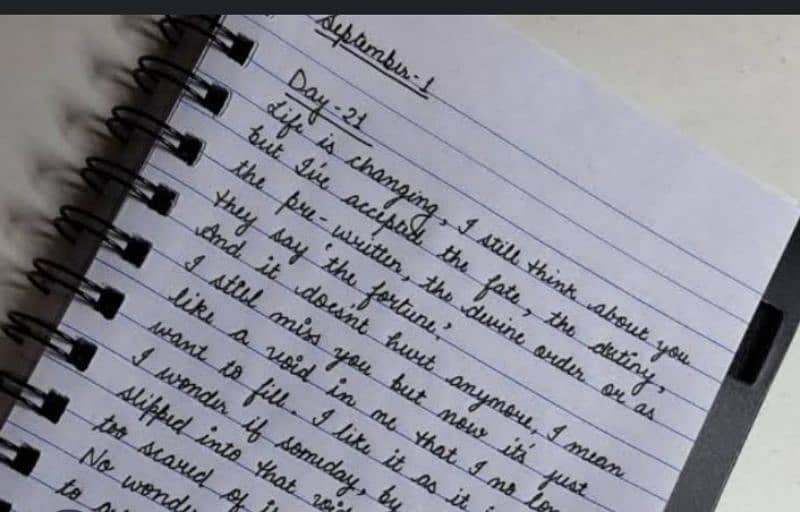 September-1
Day-21
Life is changing, I still think about you
but I've accepted the fate, the dutiny,
the pre-written, the devine order or as
they say 'the fortune.'
And it doesnt hurt anymore, I mean
I still miss you but now it's just
like a void in me that I no
want to fill. I like it as it
I wonder if someday, by
slipped into that
too scared of
No
to